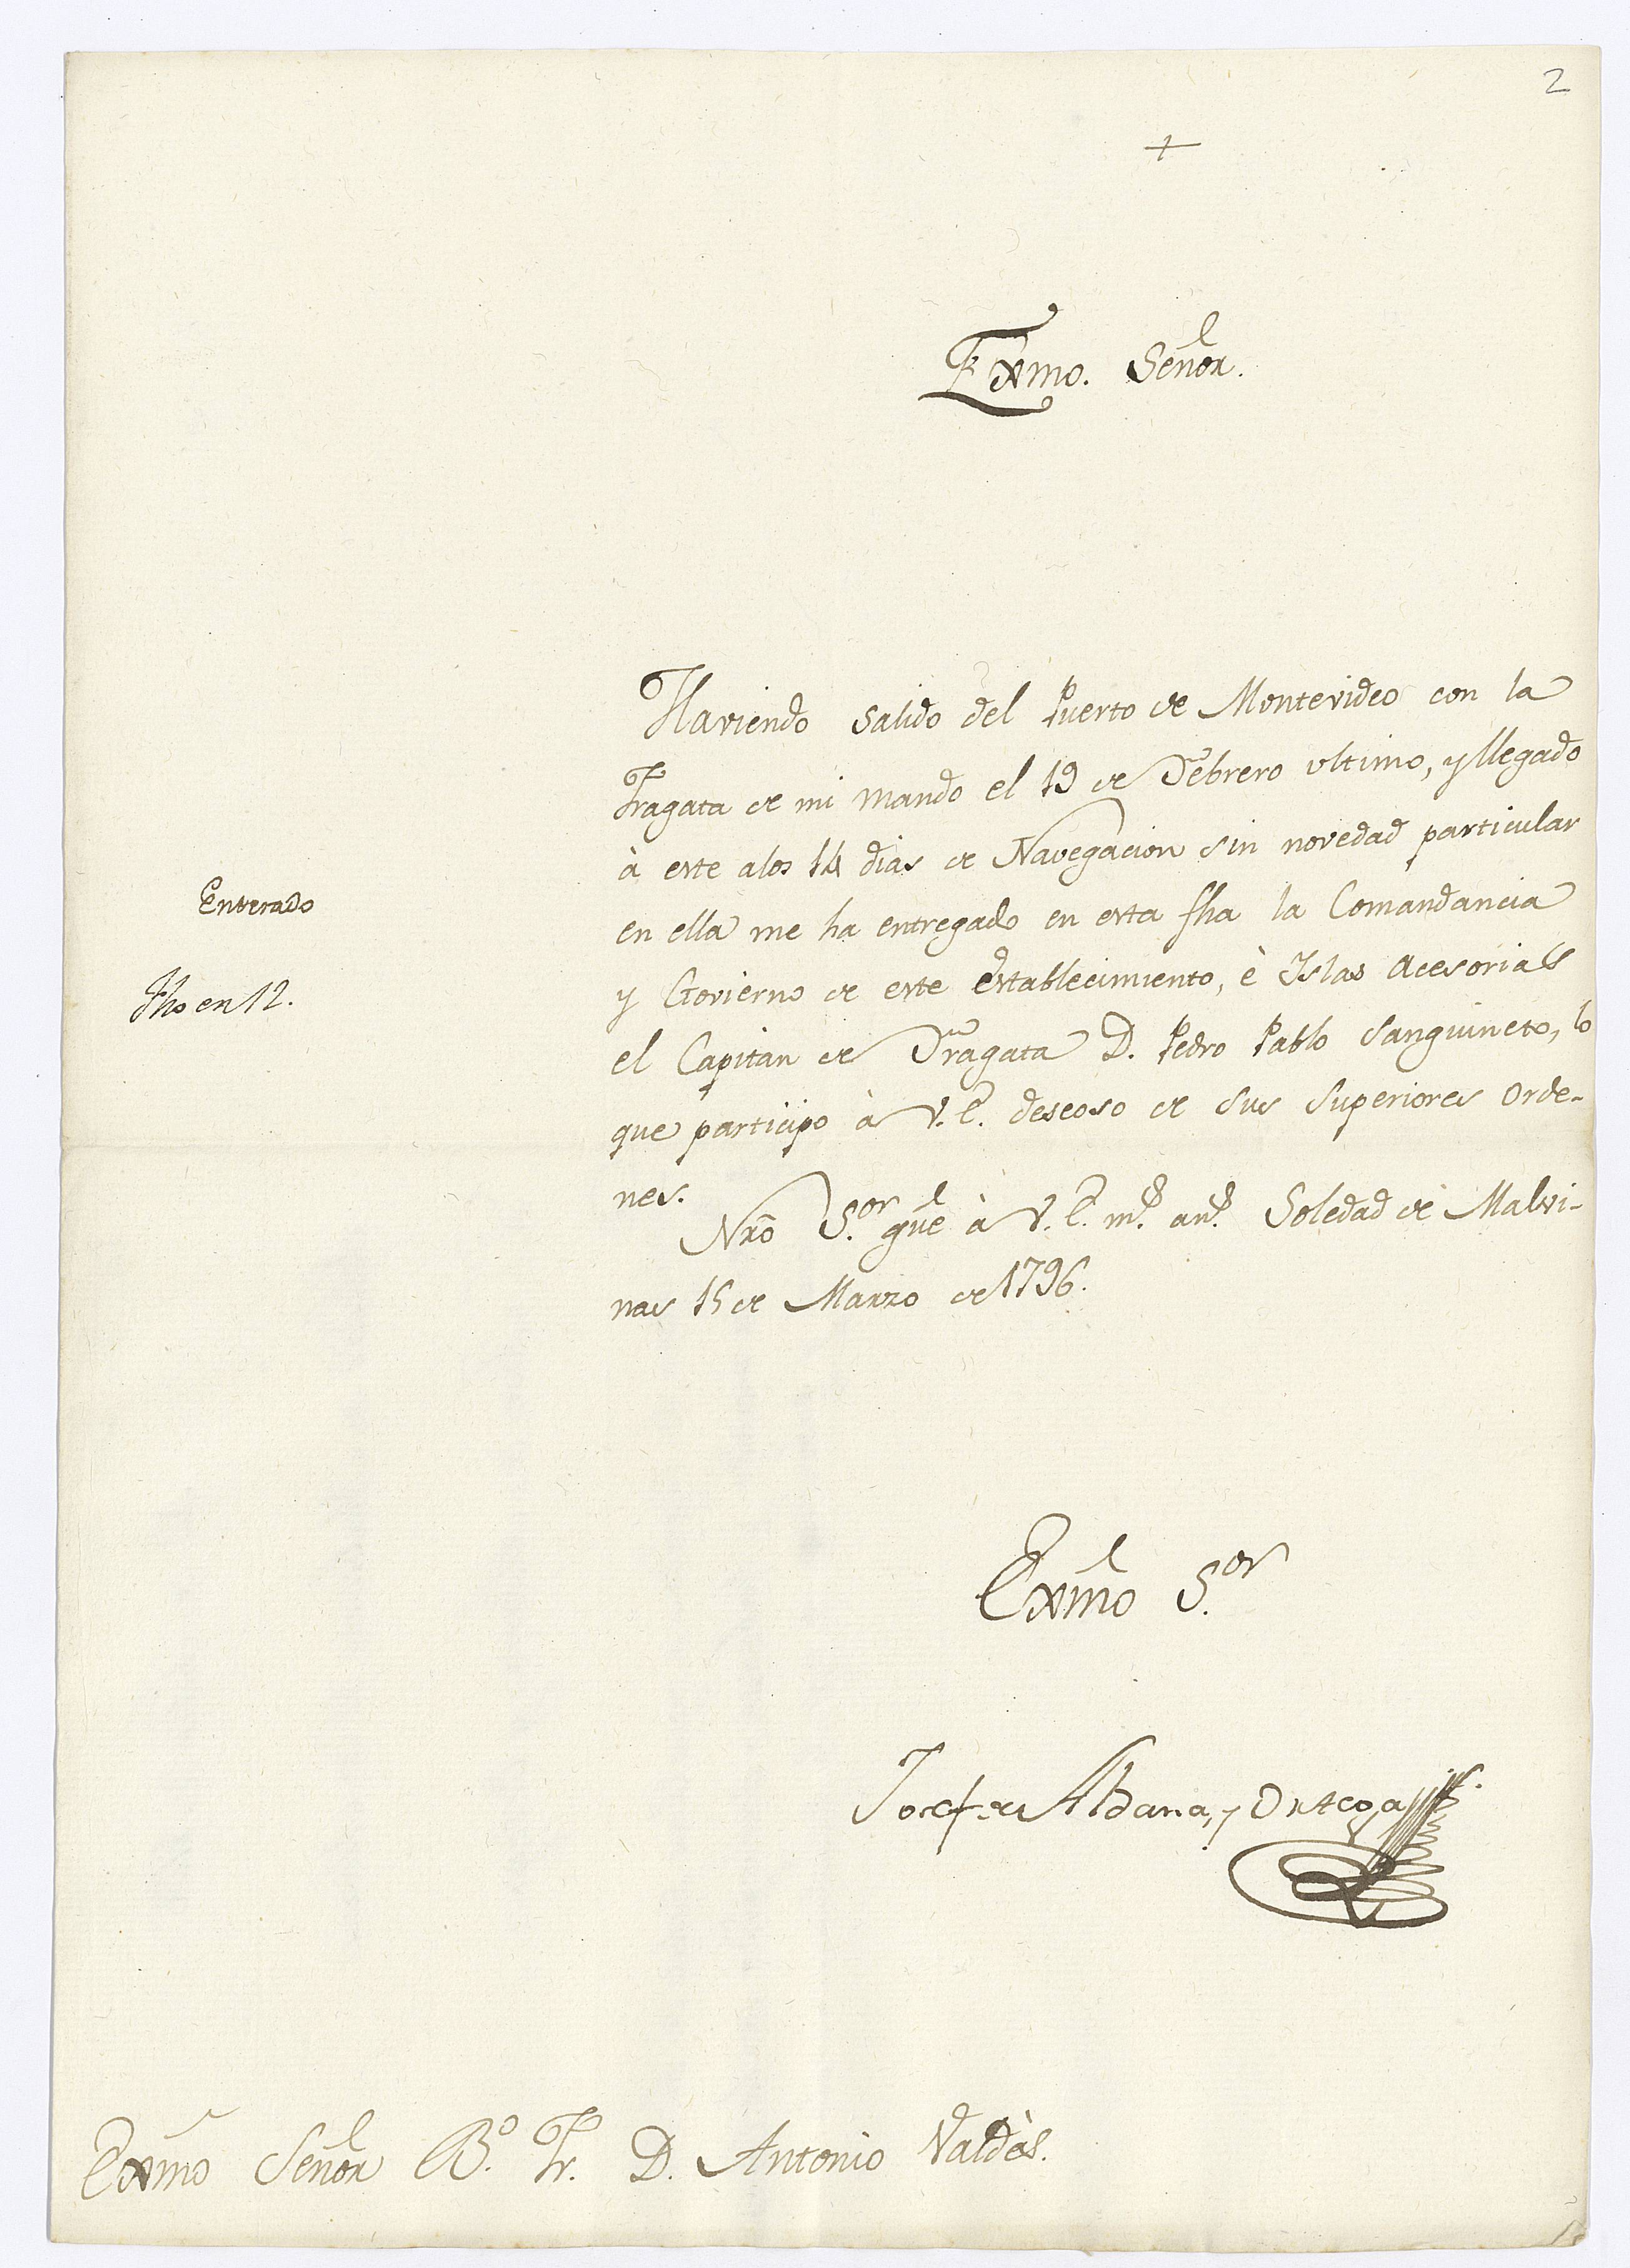 2
+
Exmo. Señor.
Haviendo salido del Puerto de Montevideo con la
Fragata de mi mando el 19 de Febrero ultimo, y llegado
à este alos 14 dias de Navegacion sin novedad particular
en ella me ha entregado en esta fha la Comandancia
y Govierno de este establecimiento, è Islas Acesorias
el Capitan de Fragata D. Pedro Pablo Sanguineto, lo
que participo à V. E. deseoso de sus superiores orde-
nes.
Nrō S.or gūe à V. E. m.s an.s Soledad de Malvi-
nas 15 de Marzo de 1796.
Enterado
Fho en 12.
Exmō S.or
Josef de Aldana, y Ortega
Exmō Señor B.o Fr. D. Antonio Valdès.